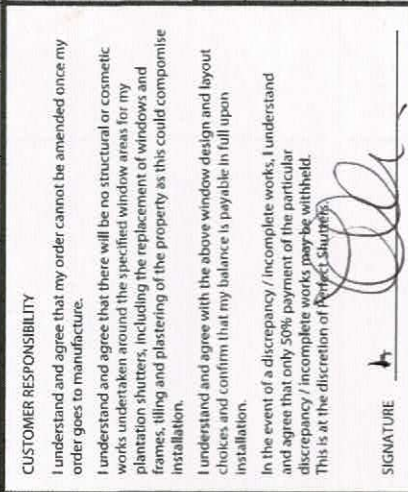 CUSTOMER RESPONSIBILITY
I understand and agree that my order cannot be amended once my
order goes to manufacture.
I understand and agree that there will be no structural or cosmetic
works undertaken around the specified window areas for my
plantation shutters, including the replacement of windows and
frames, tiling and plastering of the property as this could compomise
installation.
I understand and agree with the above window design and layout
choices and confirm that my balance is payable in full upon
installation.
In the event of a discrepancy / incomplete works, I understand
and agree that only 50% payment of the particular
discrepancy / incomplete works may be withheld.
This is at the discretion of Perfect Shutters.
SIGNATURE